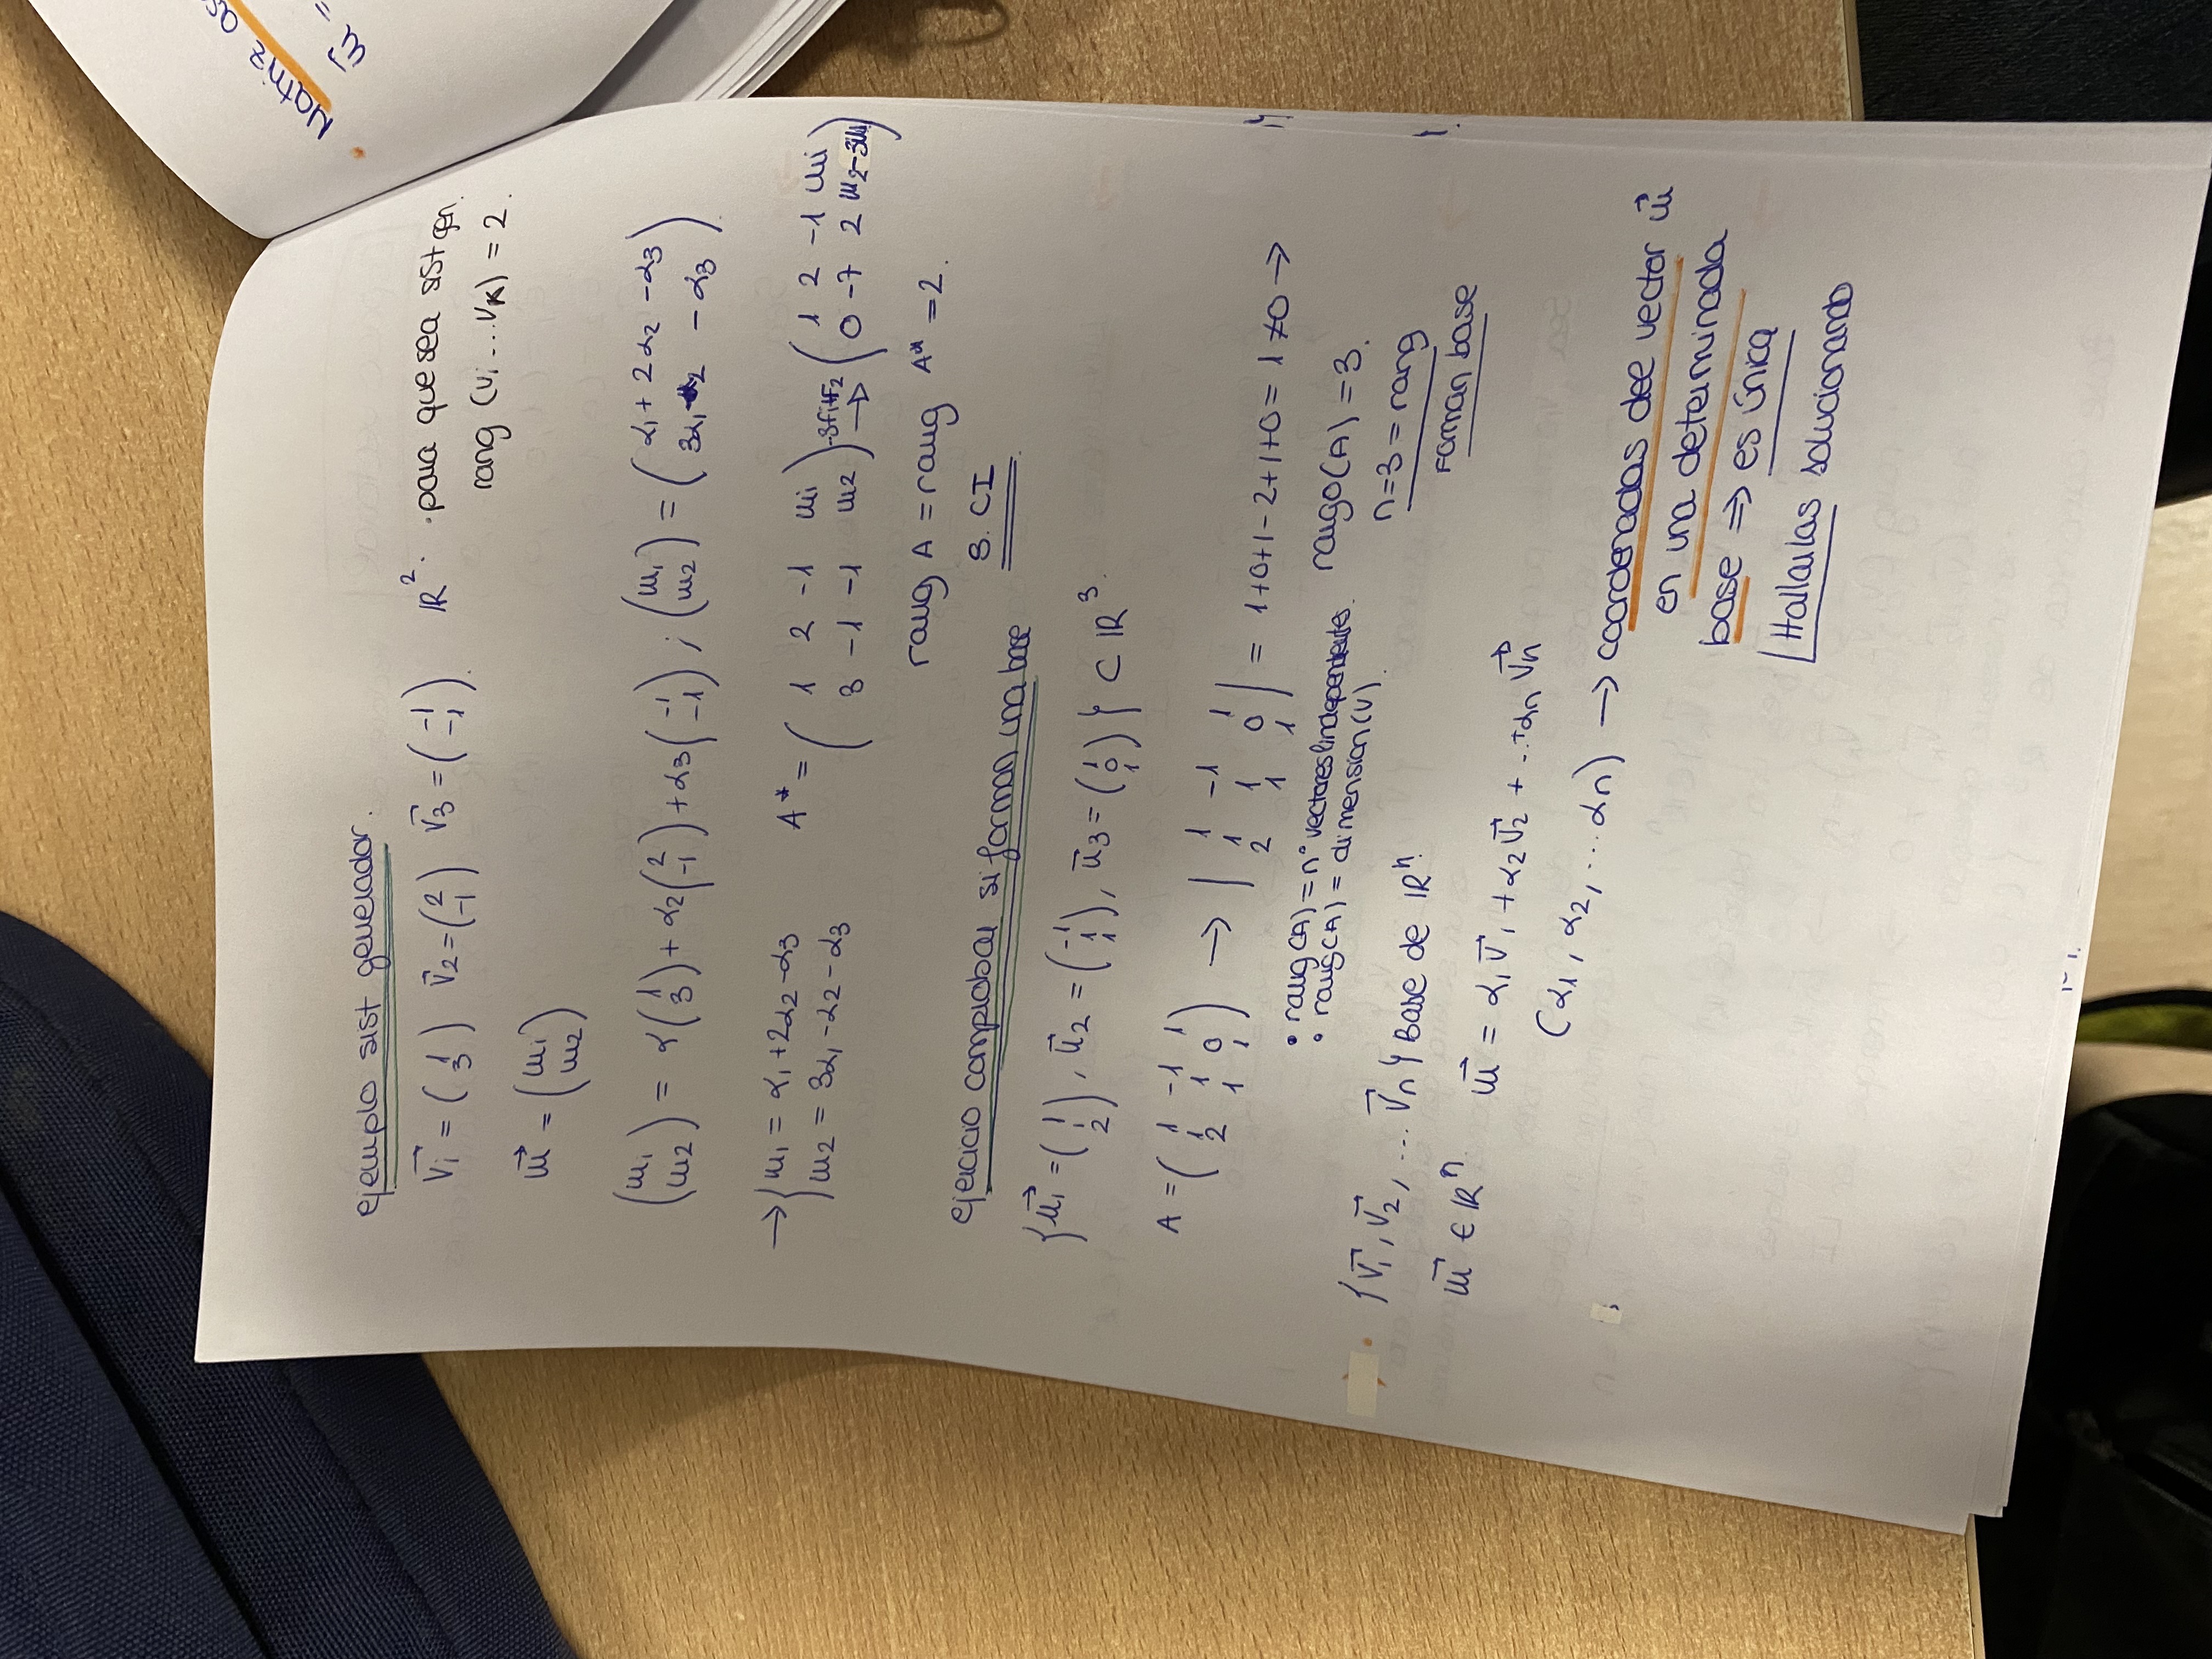 ejemplo sist generador.
V⃗₁ = (1 3) V⃗₂ = (2 -1) V⃗₃ = (-1 -1). ℝ². · para que sea sist gen.
rang (v₁ ... vₖ) = 2.
u⃗ = (u₁ u₂)
(u₁ u₂) = α(1 3) + α₂(2 -1) + α₃(-1 -1) ; (u₁ u₂) = (α₁ + 2α₂ - α₃ 3α₁ - α₂ - α₃)
→ { u₁ = α₁ + 2α₂ - α₃
u₂ = 3α₁ - α₂ - α₃
A* = (1 2 -1 u₁
3 -1 -1 u₂) -3f₁+F₂ → (1 2 -1 u₁
0 -7 2 u₂-3u₁)
rang A = rang A* = 2.
S. CI
ejercicio comprobar si forman una base
{u⃗₁ = (1 1 2), u⃗₂ = (-1 1 1), u⃗₃ = (1 0 1)} ⊂ ℝ³.
A = (1 -1 1
1 1 0
2 1 1) → |1 -1 1
1 1 0
2 1 1| = 1+0+1-2+1+0 = 1 ≠ 0 →
• rang(A) = nº vectores l.independentes.
• rang(A) = dimension(V).
rango(A) = 3.
n=3 = rang
Forman base
{V⃗₁, V⃗₂, ... V⃗n} Base de ℝⁿ.
u⃗ ∈ ℝⁿ. u⃗ = α₁V⃗₁ + α₂V⃗₂ + ... + αn V⃗n
(α₁, α₂, ... αn) → coordenadas del vector u⃗
en una determinada
base ⇒ es única
Hallarlas solucionando
Matriz
u⃗ =